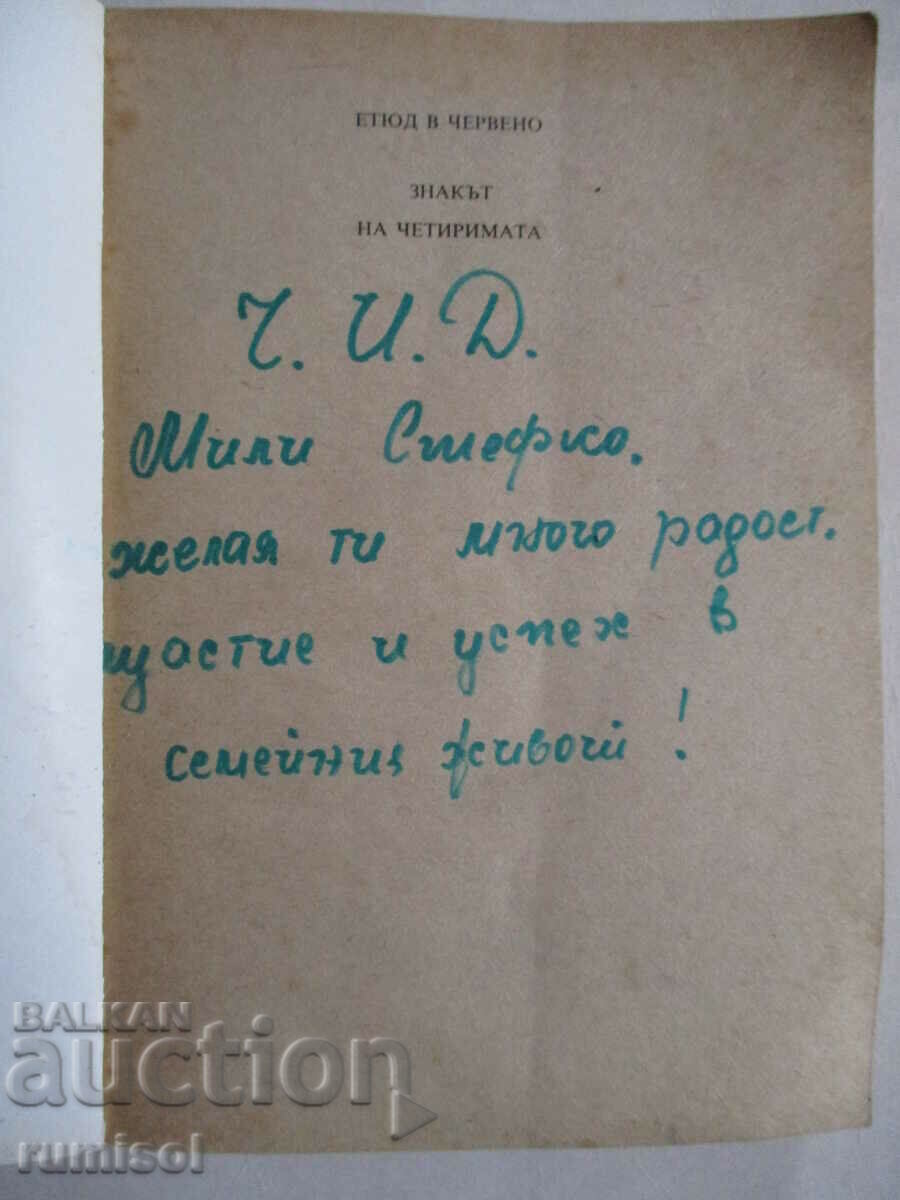 ЕТЮД В ЧЕРВЕНО
ЗНАКЪТ
НА ЧЕТИРИМАТА
Ч. И. Д.
Мили Стефко.
желая ти много радост.
щастие и успех в
семейния живот !
BALKAN
auction
rumisol